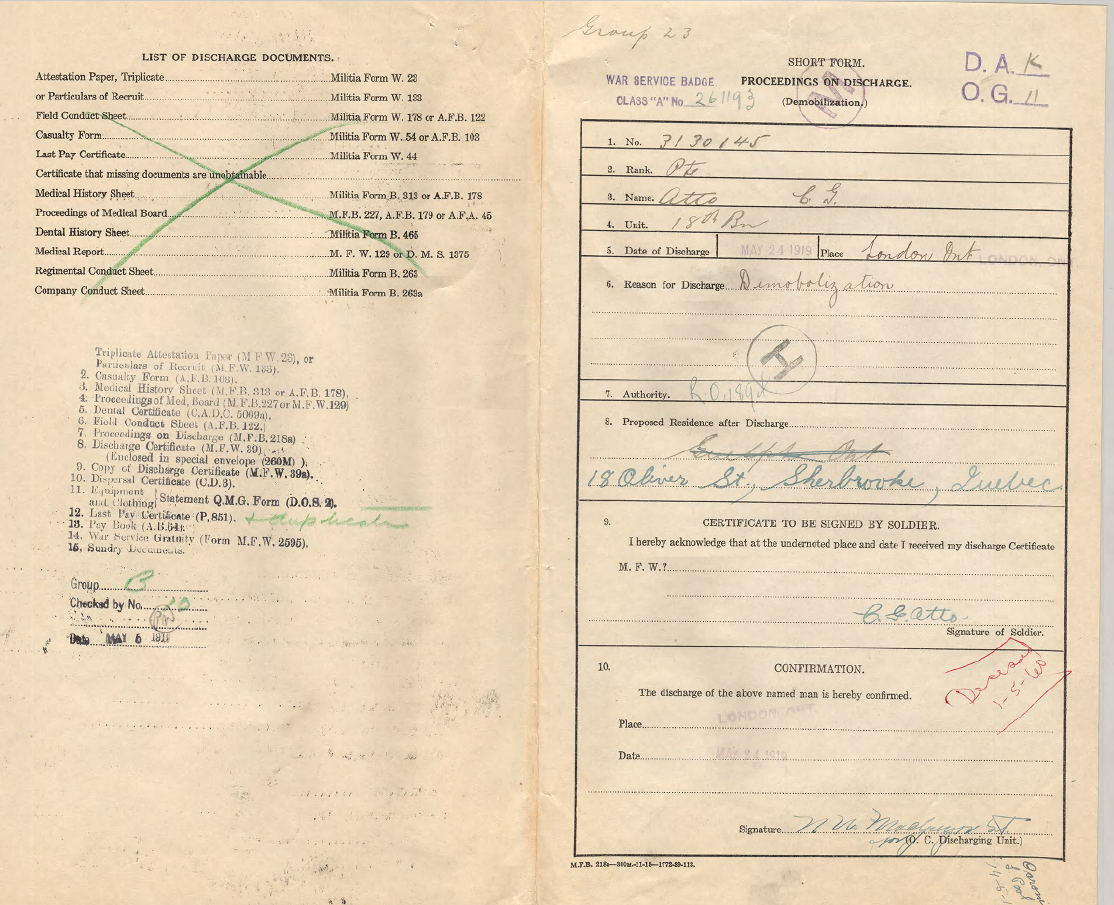 LIST OF DISCHARGE DOCUMENTS.
Attestation Paper, Triplicate Militia Form W. 23
or Particulars of Recruit Militia Form W. 133
Field Conduct Sheet Militia Form W. 178 or A.F.B. 122
Casualty Form Militia Form W. 54 or A.F.B. 103
Last Pay Certificate Militia Form W. 44
Certificate that missing documents are unobtainable
Medical History Sheet Militia Form B. 313 or A.F.B. 178
Proceedings of Medical Board M.F.B. 227, A.F.B. 179 or A.F.A. 45
Dental History Sheet Militia Form B. 465
Medical Report M. F. W. 129 or D. M. S. 1375
Regimental Conduct Sheet Militia Form B. 263
Company Conduct Sheet Militia Form B. 263a
Triplicate Attestation Paper (M F W. 23), or
Particulars of Recruit (M.F.W. 133).
2. Casualty Form (A.F.B. 103).
3. Medical History Sheet (M.F.B. 313 or A.F.B. 178),
4. Proceedings of Med, Board (M.F.B.227 or M.F.W.129)
5. Dental Certificate (C.A.D.C. 5009a),
6. Field Conduct Sheet (A.F.B. 122.)
7. Proceedings on Discharge (M.F.B.218a)
8. Discharge Certificate (M.F.W. 39)
(Enclosed in special envelope (260M) ).
9. Copy of Discharge Certificate (M.F.W. 39a).
10. Dispersal Certificate (C.D.3).
11. Equipment
and Clothing) Statement Q.M.G. Form (D.O.S. 2).
12. Last Pay Certificate (P.851). + duplicate
13. Pay Book (A.B.64).
14. War Service Gratuity (Form M.F.W. 2595).
15. Sundry Documents.
Group B
Checked by No. 20
Date MAY 6 1919
Group 23
SHORT FORM.
WAR SERVICE BADGE
CLASS "A" No. 261193
PROCEEDINGS ON DISCHARGE.
(Demobilization.)
M
D. A. K
O. G. 11
1. No. 3130145
2. Rank. Pte
3. Name. Atto C. G.
4. Unit. 18th Bn
5. Date of Discharge MAY 24 1919 Place London Ont LONDON, ON
6. Reason for Discharge Demobolization
H
7. Authority. R.O. 1894
8. Proposed Residence after Discharge
Guelph Ont
18 Oliver St, Sherbrooke, Quebec
9. CERTIFICATE TO BE SIGNED BY SOLDIER.
I hereby acknowledge that at the undernoted place and date I received my discharge Certificate
M. F. W.?
C. G. Atto
Signature of Soldier.
Deceased
1-5-60
10. CONFIRMATION.
The discharge of the above named man is hereby confirmed.
Place LONDON ONT.
Date MAY 24 1919
Signature
(O. C. Discharging Unit.)
M.F.B. 218a—340m.-11-18—1772-39-113.